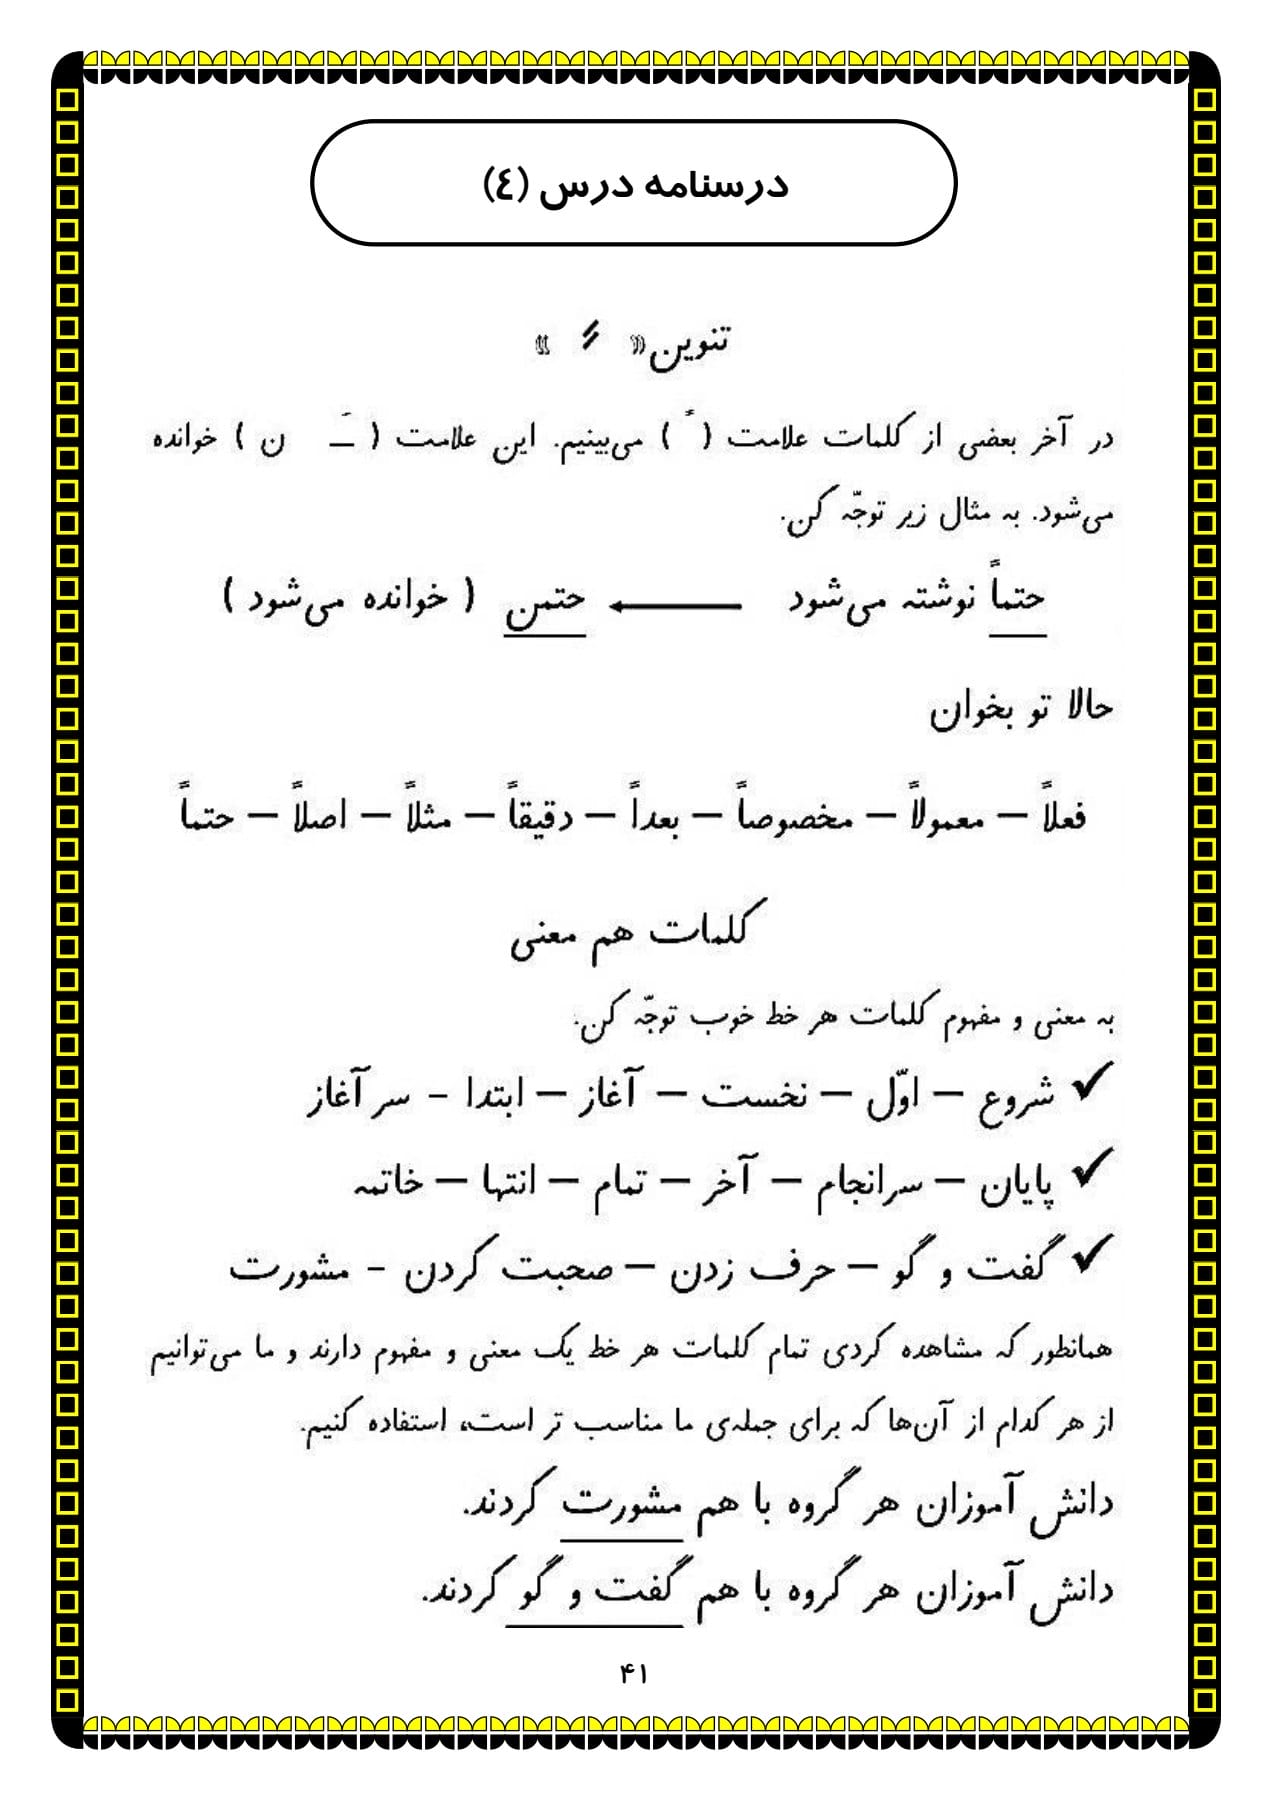 درسنامه درس (٤)
تنوین« ً »
در آخر بعضی از کلمات علامت ( ً ) می‌بینیم. این علامت ( ـَ ن ) خوانده
می‌شود. به مثال زیر توجّه کن.
حتماً نوشته می‌شود ← حتمن ( خوانده می‌شود )
حالا تو بخوان
فعلاً – معمولاً – مخصوصاً – بعداً – دقیقاً – مثلاً – اصلاً – حتماً
کلمات هم معنی
به معنی و مفهوم کلمات هر خط خوب توجّه کن.
✓ شروع – اوّل – نخست – آغاز – ابتدا - سر آغاز
✓ پایان – سرانجام – آخر – تمام – انتها – خاتمه
✓ گفت و گو – حرف زدن – صحبت کردن - مشورت
همانطور که مشاهده کردی تمام کلمات هر خط یک معنی و مفهوم دارند و ما می‌توانیم
از هر کدام از آن‌ها که برای جمله‌ی ما مناسب تر است، استفاده کنیم.
دانش آموزان هر گروه با هم مشورت کردند.
دانش آموزان هر گروه با هم گفت و گو کردند.
۴۱